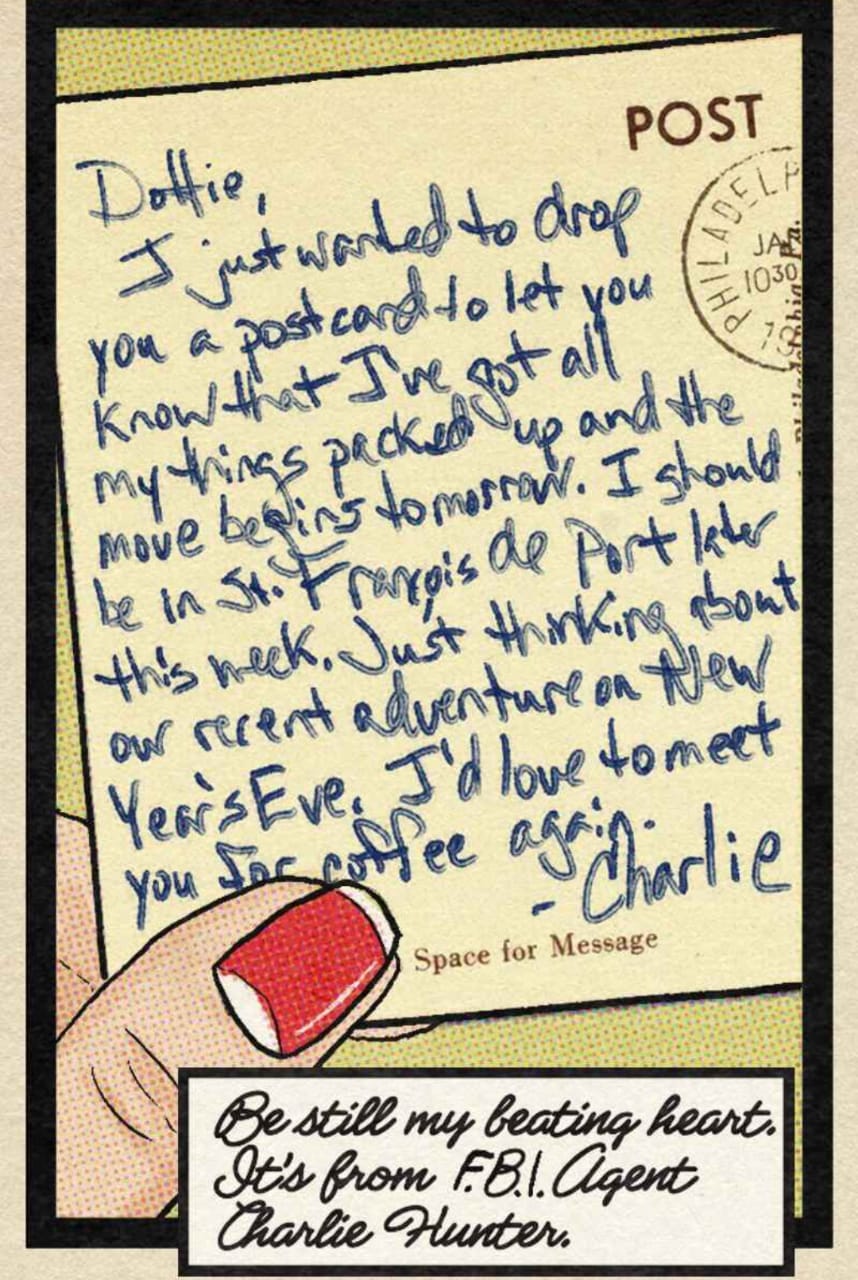 POST
PHILADELP
JA
1030
Dottie,
I just wanted to drop
you a postcard to let you
know that I've got all
my things packed up and the
move begins tomorrow. I should
be in St. François de Port later
this week. Just thinking about
our recent adventure on New
Year's Eve. I'd love to meet
you for coffee again.
- Charlie
Space for Message
Be still my beating heart.
It's from F.B.I. Agent
Charlie Hunter.